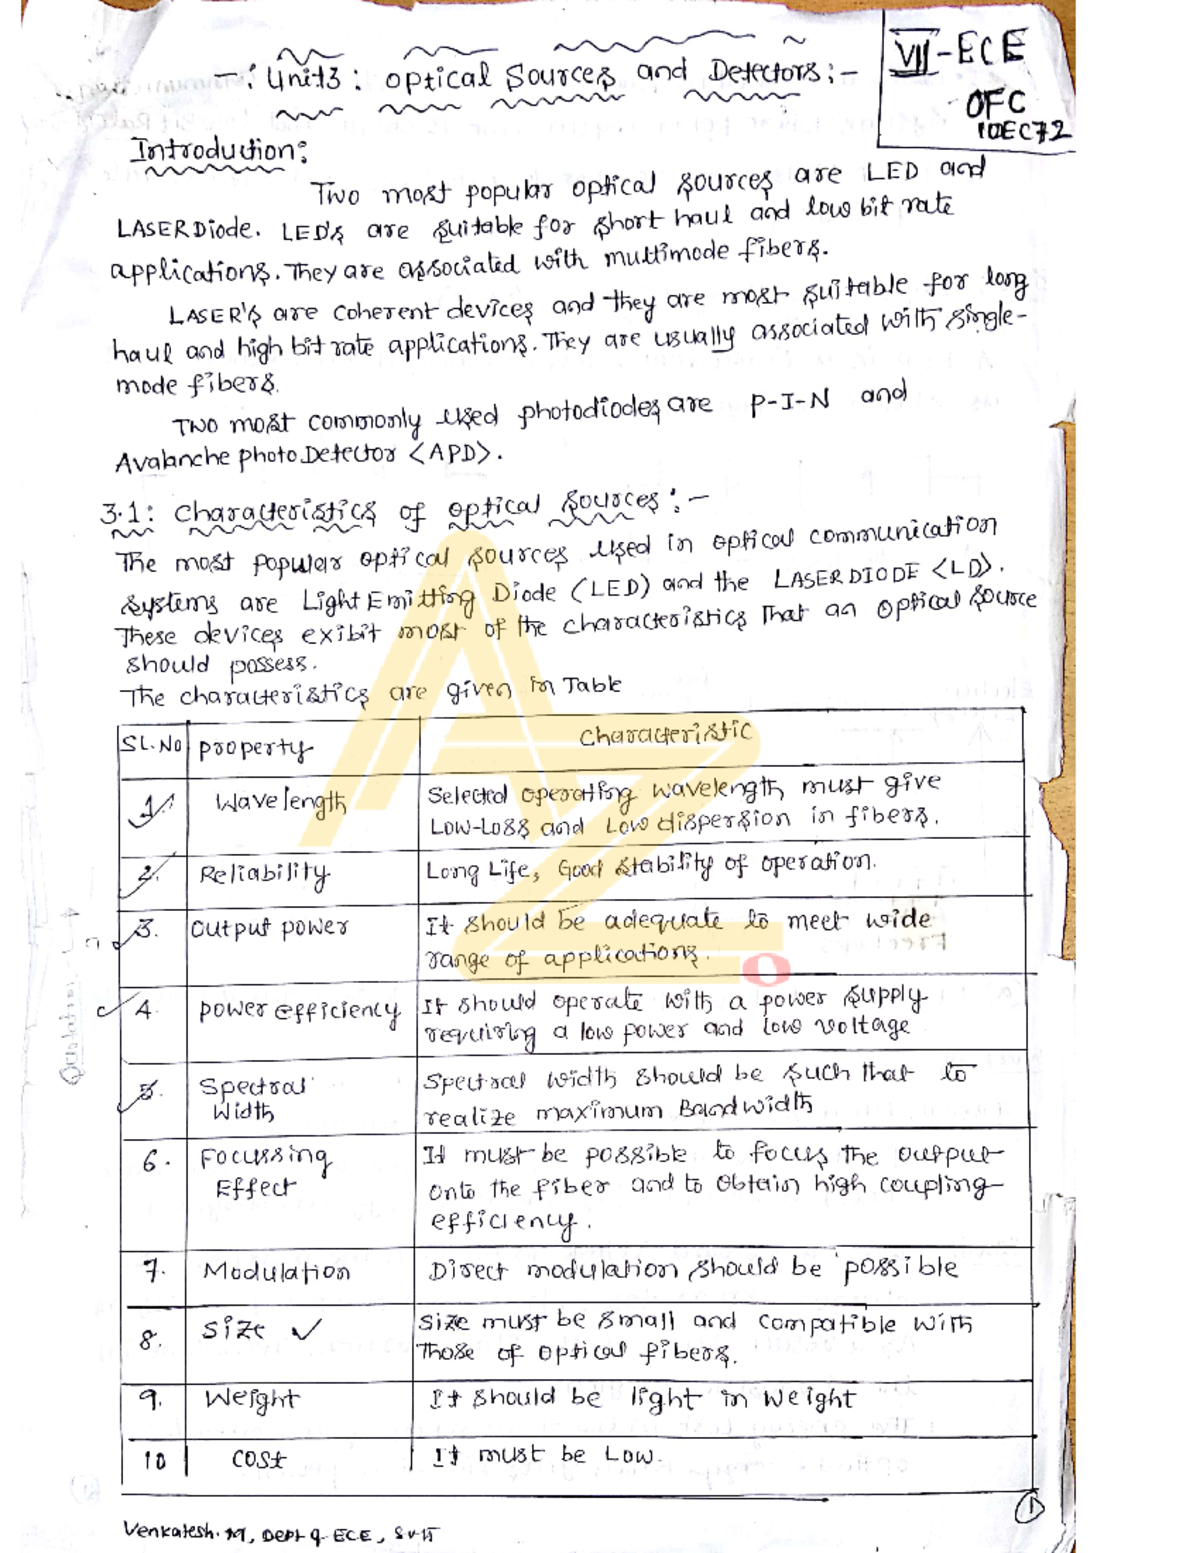 -: Unit3: Optical Sources and Detectors:-
VII-ECE
OFC
10EC72
Introduction:
Two most popular optical sources are LED and
LASER Diode. LED's are suitable for short haul and low bit rate
applications. They are associated with multimode fibers.
LASER's are coherent devices and they are most suitable for long
haul and high bit rate applications. They are usually associated with single-
mode fibers.
Two most commonly used photodiodes are P-I-N and
Avalanche photo Detector <APD>.
3.1: Characteristics of optical Sources:-
The most popular optical sources used in optical communication
systems are Light Emitting Diode (LED) and the LASER DIODE <LD>.
These devices exibit most of the characteristics that an optical source
should possess.
The characteristics are given in Table
SL.No property Characteristic
1. Wavelength Selected operating wavelength must give
Low-Loss and Low dispersion in fibers.
2. Reliability Long Life, Good stability of operation.
3. output power It should be adequate to meet wide
range of applications.
4. power efficiency It should operate with a power supply
requiring a low power and low voltage
5. Spectral Spectral width should be such that to
Width realize maximum Bandwidth
6. Focussing It must be possible to focus the output
Effect onto the fiber and to obtain high coupling
efficiency.
7. Modulation Direct modulation should be possible
8. Size ✓ Size must be small and compatible with
those of optical fibers.
9. Weight It should be light in weight
10 cost It must be Low.
1
Venkatesh. M, Dept of ECE, SVIT